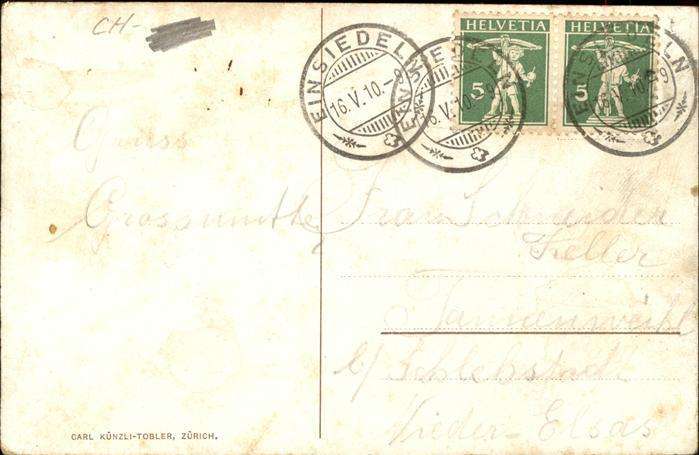 CH-
HELVETIA HELVETIA
5 5
EINSIEDELN
16.V.10.-8
EINSIEDELN
16.V.10.-8
EINSIEDELN
16.V.10.-8
Gruss
Grossmutter
Frau Schneider
Keller
b/ Schlettstadt
Nieder-Elsas
CARL KÜNZLI-TOBLER, ZÜRICH.